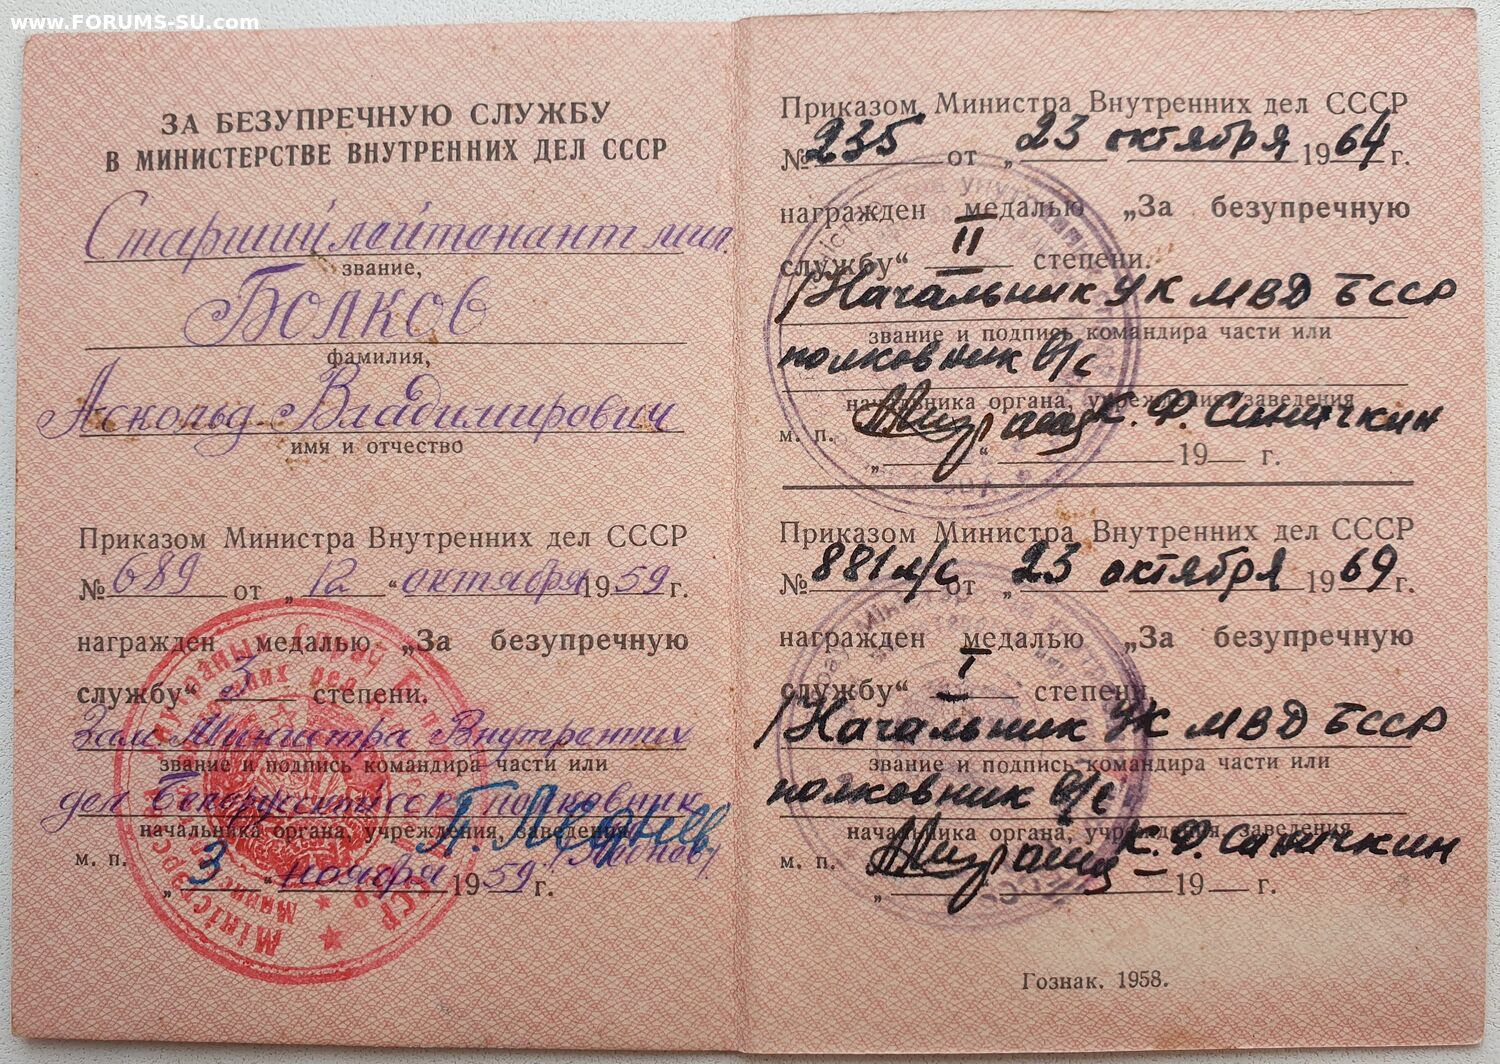 www.FORUMS-SU.com
ЗА БЕЗУПРЕЧНУЮ СЛУЖБУ
В МИНИСТЕРСТВЕ ВНУТРЕННИХ ДЕЛ СССР
Старший лейтенант мил.
звание,
Волков
фамилия,
Аскольд Владимирович
имя и отчество
Приказом Министра Внутренних дел СССР
№ 689 от „12“ октября 1959 г.
награжден медалью „За безупречную
службу“ 3 степени.
Зам. Министра Внутренних
звание и подпись командира части или
дел Белорусской ССР полковник
начальника органа, учреждения, заведения
м. п.
„3“ ноября 1959 г.
Приказом Министра Внутренних дел СССР
№ 235 от „23 октября 1964 г.
награжден медалью „За безупречную
службу“ II степени.
Начальник УК МВД БССР
звание и подпись командира части или
полковник в/с
начальника органа, учреждения, заведения
м. п. К. Ф. Синичкин
„ “ 19 г.
Приказом Министра Внутренних дел СССР
№ 881 л/с от „23 октября 1969 г.
награжден медалью „За безупречную
службу“ I степени.
Начальник УК МВД БССР
звание и подпись командира части или
полковник в/с
начальника органа, учреждения, заведения
м. п. К. Ф. Синичкин
„ “ 19 г.
Гознак. 1958.